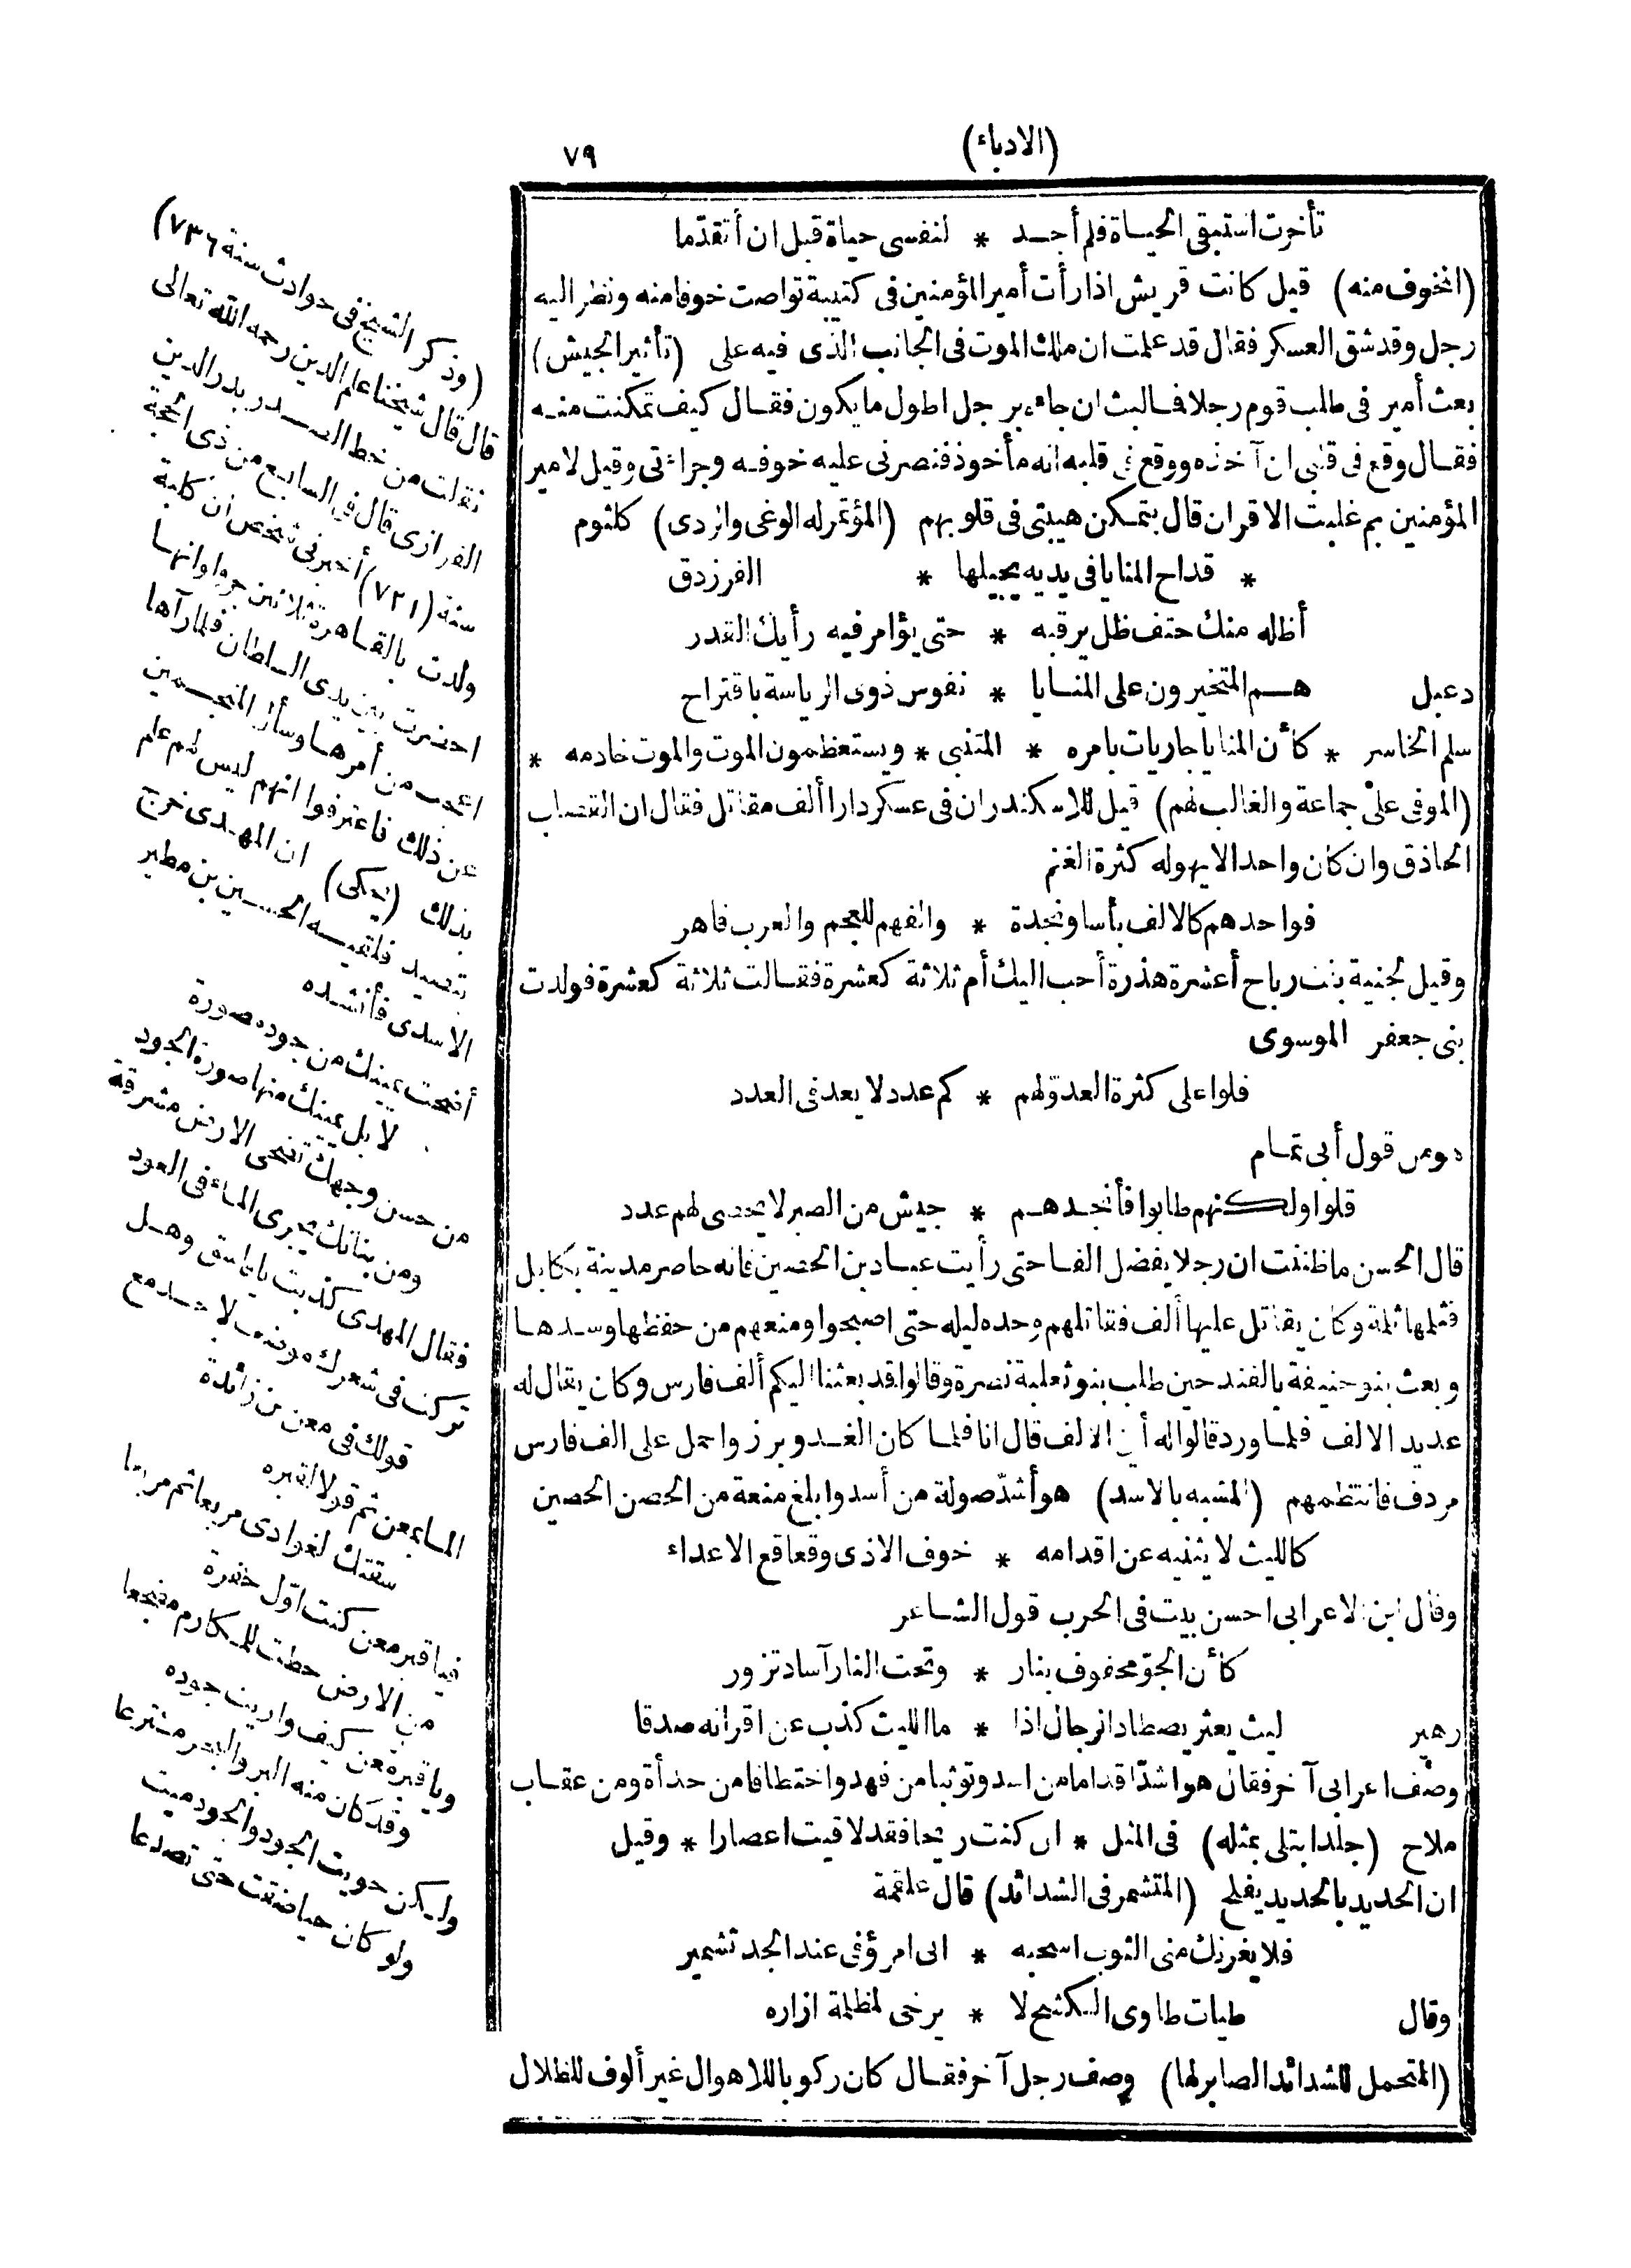 (الادباء)
٧٩
تأخرت استبقى الحياة فلم أجد * لنفسى حياة قبل ان أتقدّما
(المخوف منه) قيل كانت قريش اذا رأت أمير المؤمنين فى كتيبة تواصت خوفا منه ونظر اليه
رجل وقد شق العسكر فقال قد علمت ان ملك الموت فى الجانب الذى فيه على (تأثير الجيش)
بعث أمير فى طلب قوم رجلا فمالبث ان جاءه برجل اطول ما يكون فقال كيف تمكنت منه
فقال وقع فى قلبى ان آخذه ووقع فى قلبه انه مأخوذ فنصرنى عليه خوفه وجراءتى وقيل لامير
المؤمنين بم غلبت الاقران قال بتمكن هيبتى فى قلوبهم (المؤتمر له الوغى والردى) كلثوم
* قداح المنايا فى يديه يجيلها * الفرزدق
أظله منك حتف ظل يرقبه * حتى يؤامر فيه رأيك القدر
دعبل هم المتخيرون على المنايا * نفوس ذوى الرياسة باقتراح
سلم الخاسر * كأن المنايا جاريات بامره * المتنبى * ويستعظمون الموت والموت خادمه *
(الموفى على جماعة والغالب لهم) قيل للاسكندر ان فى عسكر دارا ألف مقاتل فقال ان القصاب
الحاذق وان كان واحدا لا يهوله كثرة الغنم
فواحدهم كالالف بأسا ونجدة * والفهم للعجم والعرب قاهر
وقيل لجنية بنت رباح أعشرة هذرة أحب اليك أم ثلاثة كعشرة فقالت ثلاثة كعشرة فولدت
بنى جعفر الموسوى
فلوا على كثرة العدوّ لهم * كم عدد لا يعد فى العدد
وومن قول أبى تمام
قلوا ولكنهم طابوا فأنجدهم * جيش من الصبر لا يحصى لهم عدد
قال الحسن ما ظننت ان رجلا يفضل الفا حتى رأيت عباد بن الحصين فانه حاصر مدينة بكابل
فثلمها ثلمة وكان يقاتل عليها ألف فقاتلهم وحده ليله حتى اصبحوا ومنعهم من حفظها وسدها
وبعث بنو حنيفة بالفند حين طلب بنو ثعلبة نصرة وقالوا قد بعثنا اليكم ألف فارس وكان يقال له
عديد الالف فلما ورد قالوا له أين الالف قال انا فلما كان الغد وبرز واحمل على الف فارس
مردف فانتظمهم (المشبه بالاسد) هو أشدّ صولة من أسد وابلغ منعة من الحصن الحصين
كالليث لا يثنيه عن اقدامه * خوف الاذى وقعاقع الاعداء
وقال ابن الاعرابى احسن بيت فى الحرب قول الشاعر
كأن الجوّ محفوف بنار * وتحت النار آساد تزور
زهير ليث بعثر يصطاد الرجال اذا * ما الليث كذب عن اقرانه صدقا
وصف اعرابى آخر فقال هو اشدّ اقداما من اسد وتوثبا من فهد واختطافا من حدأة ومن عقاب
ملاح (جلد ابتلى بمثله) فى المثل * ان كنت ريحا فقد لاقيت اعصارا * وقيل
ان الحديد بالحديد يفلح (المتشمر فى الشدائد) قال علقمة
فلا يغرنك منى الثوب اسحبه * انى امرؤ فى عند الجد تشمير
وقال طيات طاوى الكشح لا * يرخى لمظلمة ازاره
(المتحمل للشدائد الصابر لها) وصف رجل آخر فقال كان ركوبا للاهوال غير ألوف للظلال
(وذكر الشيخ فى حوادث سنة ٧٣٦)
قال قال شيخنا علم الدين رحمه الله تعالى
نقلت من خط الصدر بدر الدين
الفزازى قال فى السابع من ذى الحجة
سنة (٧٢١) أخبرنى شخص ان كلبة
ولدت بالقاهرة ثلاثين جروا وانها
احضرت بين يدى السلطان فلما رآها
اعجب من أمرها وسأل المنجمين
عن ذلك فاعترفوا انهم ليس لهم علم
بذلك (يحكى) ان المهدى خرج
يتصيد فلقيه الحسين بن مطير
الاسدى فأنشده
أضحت يمينك من جوده صورة
لا بل يمينك منها صورة الجود
من حسن وجهك تضحى الارض مشرقة
ومن بنانك يجرى الماء فى العود
فقال المهدى كذبت يا فاسق وهل
تركت فى شعرك موضعا لاحد مع
قولك فى معن بن زائدة
الما بمعن ثم قولا لقبره
سقتك الغوادى مربعا ثم مربعا
فيا قبر معن كنت اوّل حفرة
من الارض حطت للمكارم مضجعا
ويا قبر معن كيف واريت جوده
وقد كان منه البر والبحر مترعا
ولكن حويت الجود والجود ميت
ولو كان حيا ضقت حتى تصدعا